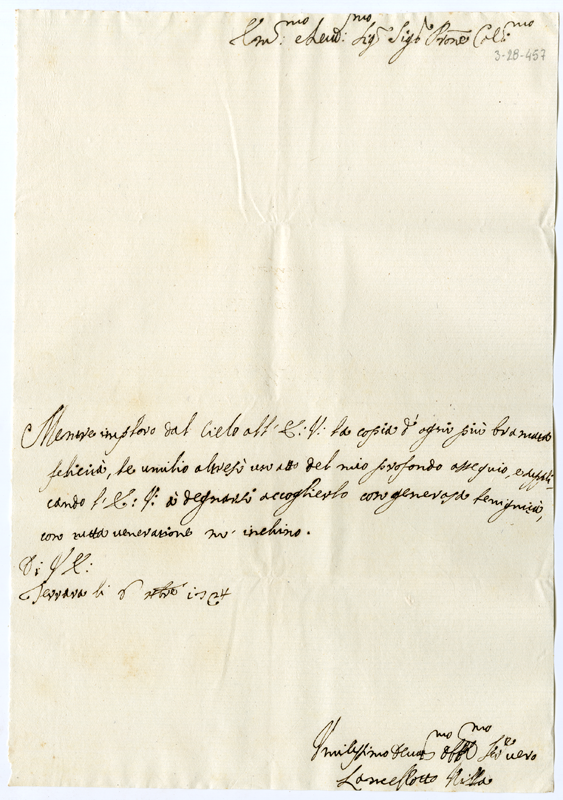 Em.mo e Reu.mo Sig.r Sig.r Prone Col.mo
3-28-457
Mentre imploro dal Cielo all' E: V: la copia d' ogni più bramata
felicità, le umilio altresì un atto del mio profondo ossequio, e suppli-
cando l' E: V: à degnarsi accoglierlo con generosa benignità,
con tutta venerazione m' inchino.
Di V E:
Ferrara li
Vmilissimo Deuo.mo Obb.mo Ser.e uero
Lancellotto